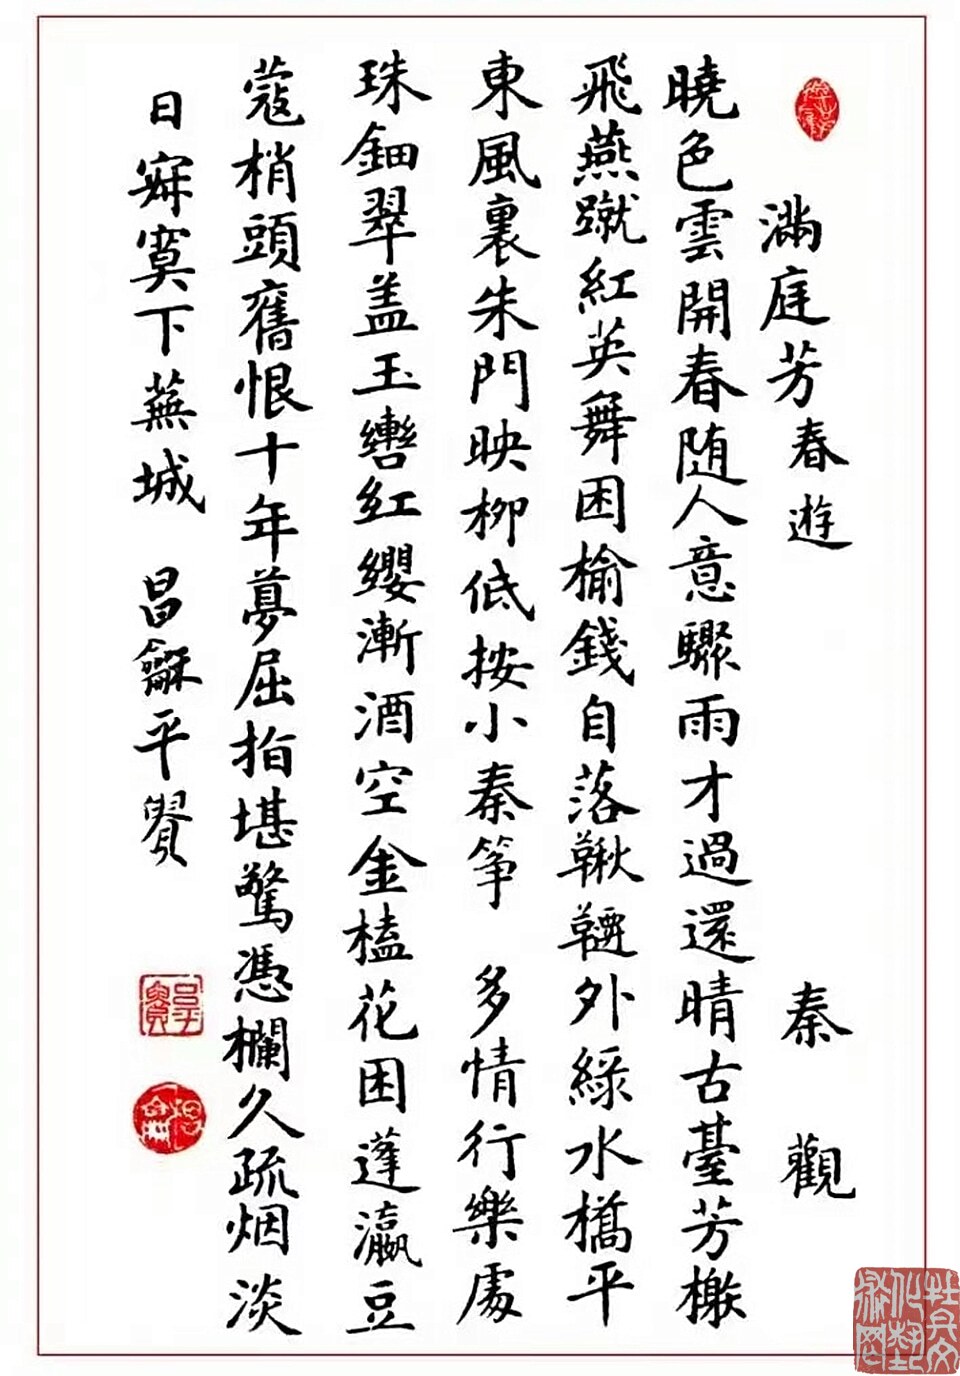 滿庭芳春遊 秦觀
曉色雲開春随人意驟雨才過還晴古臺芳榭
飛燕蹴紅英舞困榆錢自落鞦韆外綠水橋平
東風裏朱門映柳低按小秦筝 多情行樂處
珠鈿翠盖玉轡紅纓漸酒空金榼花困蓬瀛豆
蔻梢頭舊恨十年夢屈指堪驚憑欄久疏烟淡
日寂寞下蕪城 昌龢平